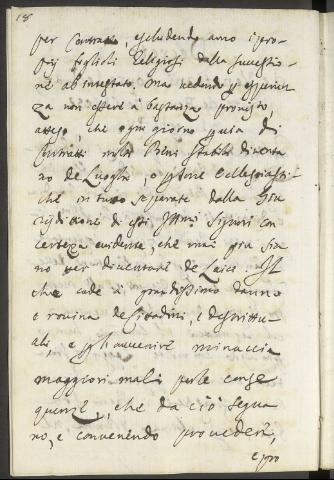 per Contratti, escludendo anco i pro-
prij figlioli Religiosi dalla successio-
ne ab'intestato. Ma vedendo p esperien-
za non essere à bastanza provisto,
atteso, che ogni giorno p via di
Contratti molti Beni stabili diventa
no de Luoghi, o p sone Ecclesiasti-
che in tutto separate dalla Giu
risditione di essi Ill.mi Signori con
certezza evidente, che mai piu sia
no per diventare de Laici. Il
che cade à grandissimo danno
e rovina de Cittadini, e destrittu-
ali, e p l'avvenire minaccia
maggiori mali p le conse
quenze, che da ciò segua
no, e convenendo provedere,
e pro